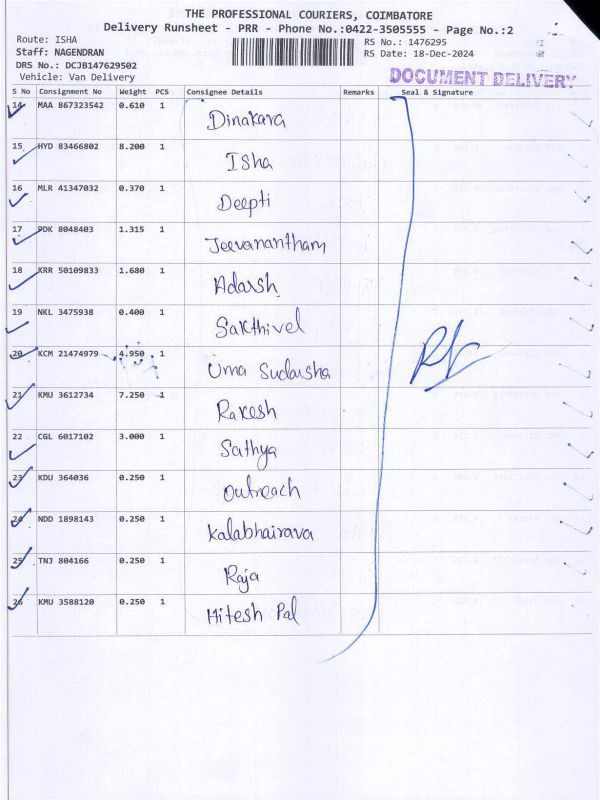 THE PROFESSIONAL COURIERS, COIMBATORE
Delivery Runsheet - PRR - Phone No.:0422-3505555 - Page No.:2
Route: ISHA
RS No.: 1476295
Staff: NAGENDRAN
RS Date: 18-Dec-2024
DRS No.: DCJB147629502
Vehicle: Van Delivery
DOCUMENT DELIVERY
S No Consignment No Weight PCS Consignee Details Remarks Seal & Signature
14 MAA 867323542 0.610 1 Dinakara
15 HYD 83466802 8.200 1 Isha
16 MLR 41347032 0.370 1 Deepti
17 PDK 8048403 1.315 1 Jeevanantham
18 KRR 50109833 1.680 1 Adarsh
19 NKL 3475938 0.400 1 Sakthivel
20 KCM 21474979 4.950 1 Uma Sudarsha
21 KMU 3612734 7.250 1 Rakesh
22 CGL 6017102 3.000 1 Sathya
23 KDU 364036 0.250 1 Outreach
24 NDD 1898143 0.250 1 Kalabhairava
25 TNJ 804166 0.250 1 Raja
26 KMU 3588120 0.250 1 Hitesh Pal